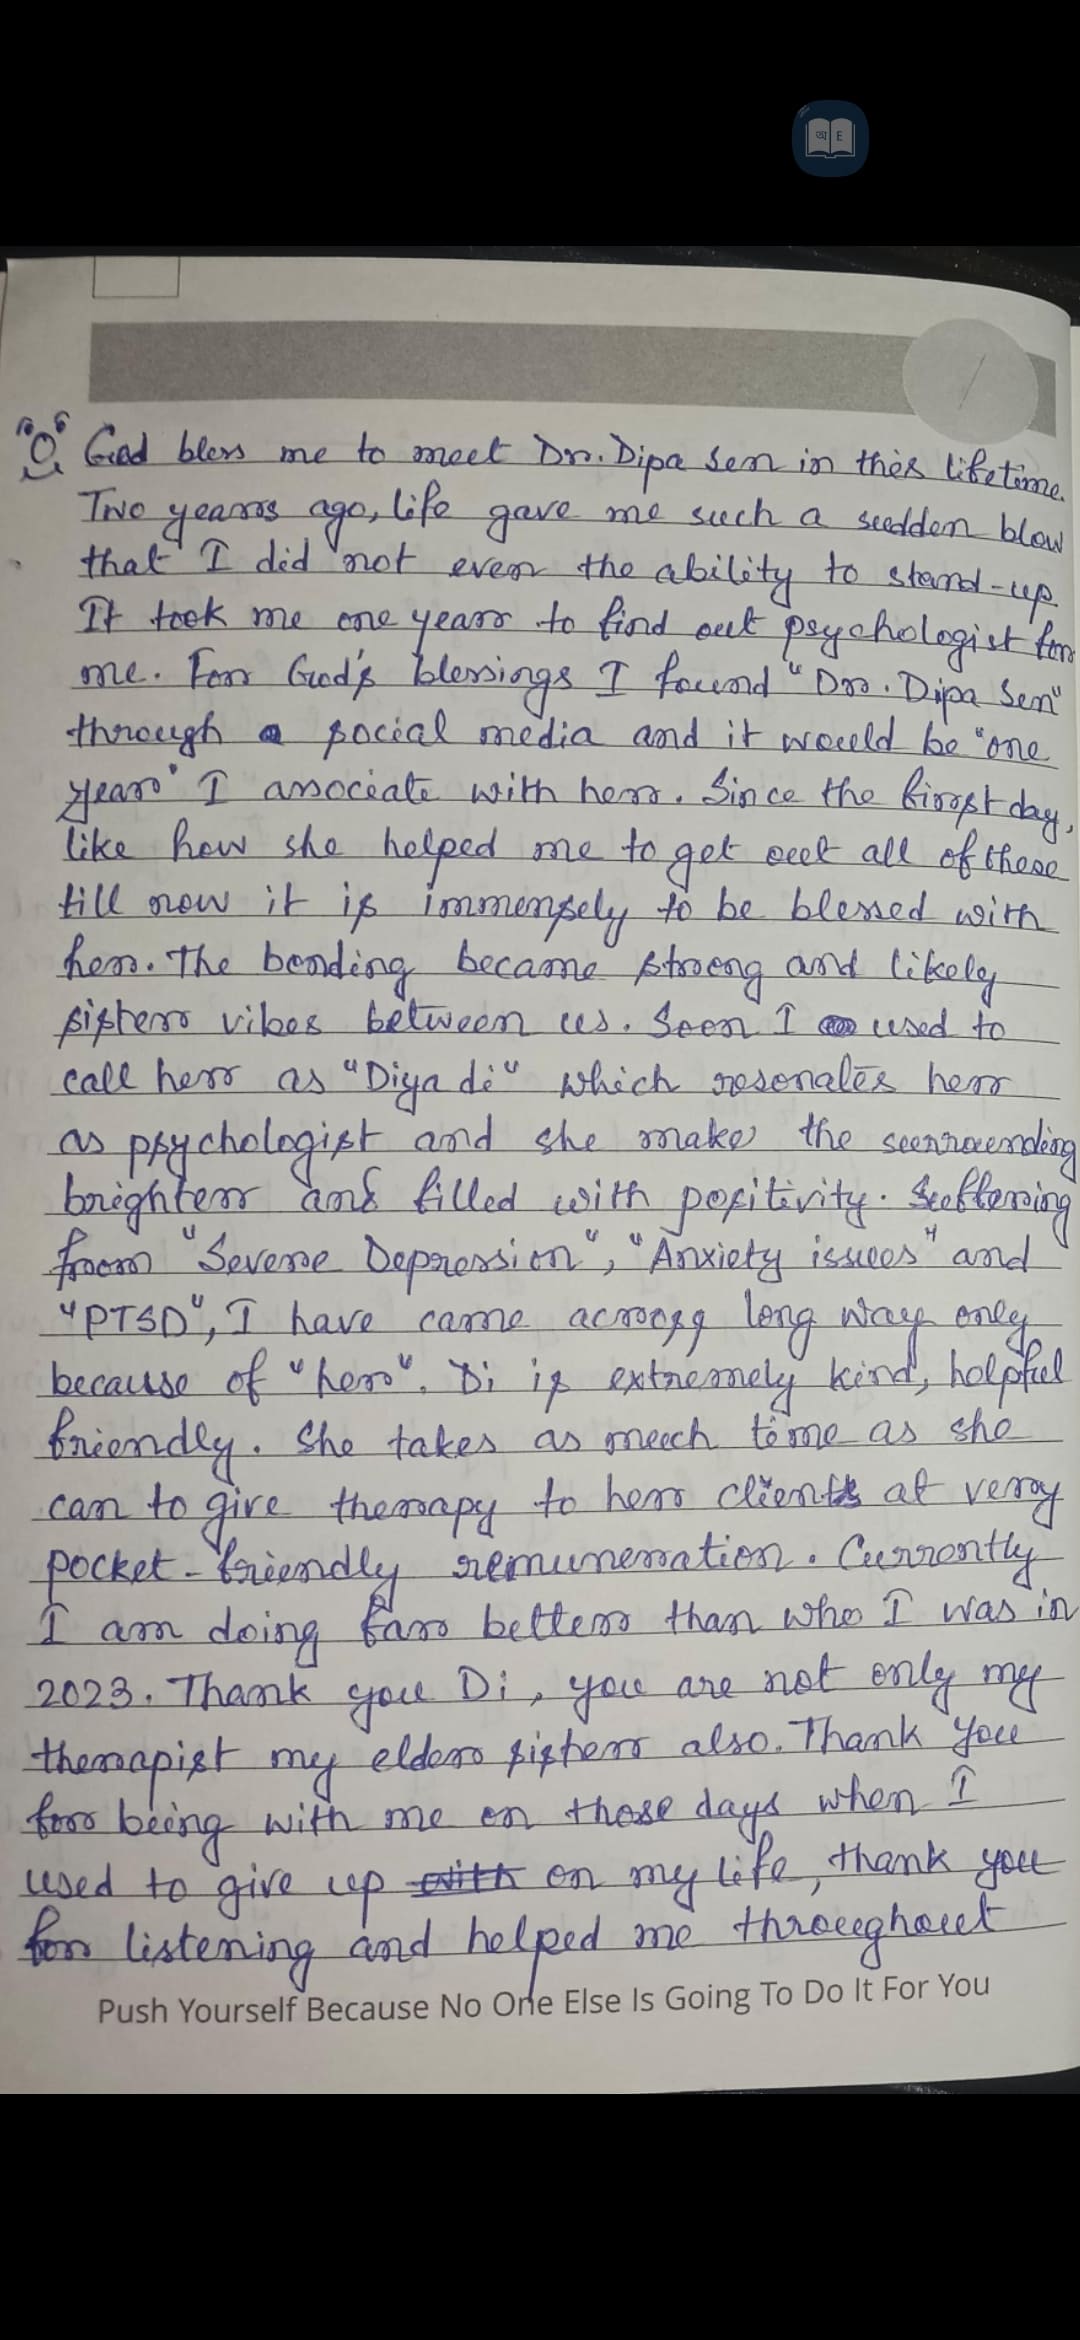 অ E
God bless me to meet Dr. Dipa Sen in this lifetime.
Two years ago, life gave me such a sudden blow
that I did not even the ability to stand-up.
It took me one year to find out psychologist for
me. For God's blessings I found "Dr. Dipa Sen"
through a social media and it would be "one
year" I associate with her. Since the first day,
like how she helped me to get out all of these
till now it is immensely to be blessed with
her. The bonding became strong and likely
sisters vibes between us. Soon I used to
call her as "Diya di" which resonates her
as psychologist and she make the surrounding
brighter and filled with positivity. Suffering
from "Severe Depression", "Anxiety issues" and
"PTSD", I have came across long way only
because of "her". Di is extremely kind, helpful
friendly. She takes as much time as she
can to give therapy to her clients at very
pocket-friendly remuneration. Currently
I am doing far better than who I was in
2023. Thank you Di, you are not only my
therapist my elder sister also. Thank you
for being with me on those days when I
used to give up on my life, thank you
for listening and helped me throughout
Push Yourself Because No One Else Is Going To Do It For You